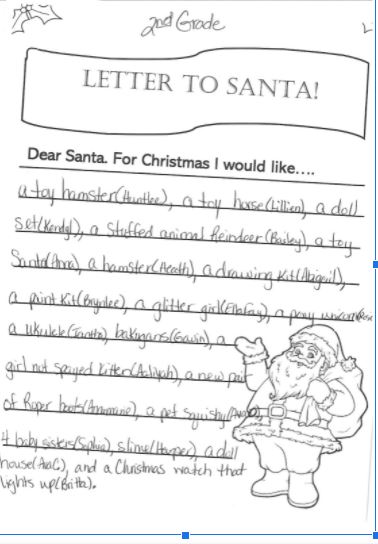 2nd Grade
LETTER TO SANTA!
Dear Santa. For Christmas I would like....
a toy hamster(Huntlee), a toy horse(Lillien), a doll
set(Kendyl), a stuffed animal Reindeer(Bailey), a toy
Santa(Anna), a hamster(Heath), a drawing Kit(Abigail),
a paint Kit(Brynlee), a glitter girl(EllaFay), a pony unicorn
a ukulele, bakugans(Gavin), a
girl not spayed Kitten(Aaliyah), a new pair
of Roper boots, a pet squishy
4 baby sisters(Sophia), slime(Harper), a doll
house(AvaC), and a Christmas watch that
lights up(Britta).